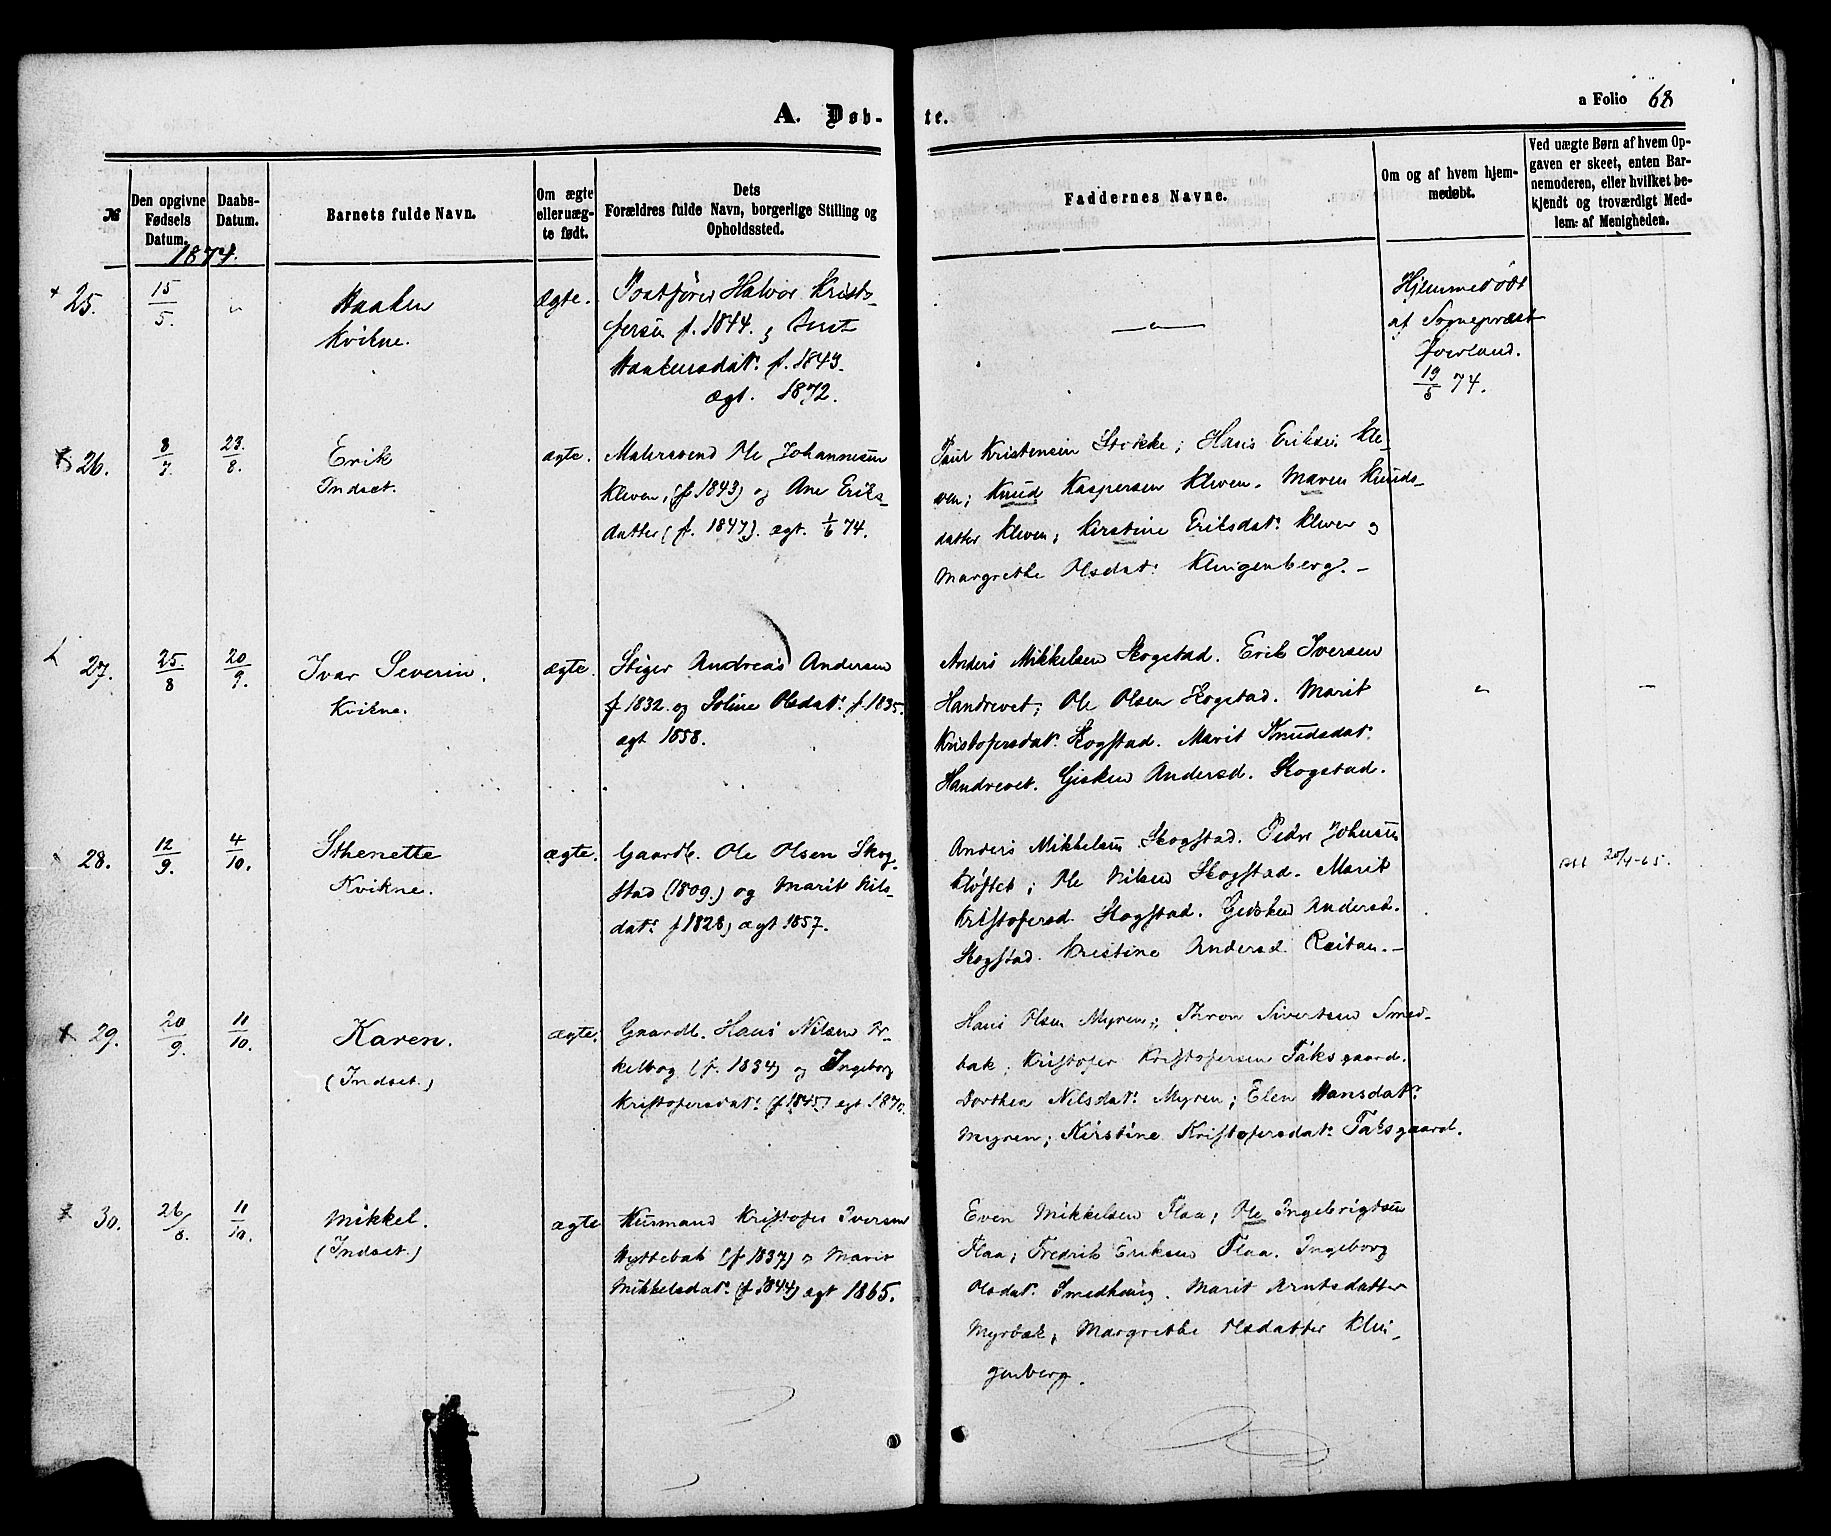 a Folio 68
A. Døb-te.
№
Den opgivne Fødsels Datum.
Daabs-Datum.
Barnets fulde Navn.
Om ægte eller uæg-te født.
Dets Forældres fulde Navn, borgerlige Stilling og Opholdssted.
Faddernes Navne.
Om og af hvem hjem-medøbt.
Ved uægte Børn af hvem Op-gaven er skeet, enten Bar-nemoderen, eller hvilket be-kjendt og troværdigt Med-lem af Menigheden.
1874.
25.
15/5.
"
Haaken
Kvikne.
ægte.
Postfører Halvor Krist-
fersen f. 1844. og Beret
Haakensdatr. f. 1843.
ægt. 1872.
"
Hjemmedøbt
af Sognepræst
Øverland.
19/5 74.
26.
8/7
23./8.
Erik
Indset.
ægte.
Malersvend Ole Johannesen
Kleven, (f 1843) og Ane Eriks-
datter (f. 1847). ægt. 1/6 74.
Paul Kristensen Stokke; Hans Eriksen Kle-
ven; Knud Kaspersen Kleven. Maren Knuds-
datter Kleven; Kirstine Eriksdatr. Kleven og
Margrethe Olsdatr. Klingenberg. -
27.
25./8
20/9.
Ivar Severin.
Kvikne.
ægte.
Stiger Andreas Andersen
f 1832. og Soline Olsdatr. f. 1835.
ægt 1858.
Anders Mikkelsen Skogstad. Erik Iversen
Handrevet; Ole Olsen Skogstad. Marit
Kristofersdatr. Skogstad. Marit Knudsdatr.
Handrevet. Gisken Andersd. Skogstad.
"
-
28.
12/9.
4/10.
Sthenette
Kvikne.
ægte.
Gaardb. Ole Olsen Skog-
stad (1809.) og Marit Nils-
datr. f 1828) ægt 1857.
Anders Mikkelsen Skogstad. Peder Johnsen
Kløftet; Ole Nilsen Skogstad. Marit
Kristofersd. Skogstad. Gidsken Andersd.
Skogstad. Kristine Andersd. Reitan. -
Att 20/4-65.
29.
20/9.
11/10.
Karen.
(Indset.)
ægte.
Gaardb. Hans Nilsen
(f. 1834) og Ingeborg
Kristofersdatr. (f 1845) ægt 1870.
Hans Olsen Myren; Thron Sivertsen Smed-
bak; Kristofer Kristofersen Taksgaard.
Dorthea Nilsdatr. Myren; Elen Hansdatr.
Myren; Kirstine Kristofersdatr. Taksgaard.
30.
26/8.
11/10.
Mikkel.
(Indset.)
ægte
Husmand Kristofer Iversen
Hyttebak (f 1837) og Marit
Mikkelsdatr. (f 1844) ægt 1865.
Even Mikkelsen Flaa; Ole Ingebrigtsen
Flaa; Fredrik Eriksen Flaa. Ingeborg
Olsdatr. Smedhaug. Marit Arntsdatter
Myrbak; Margrethe Olsdatter Klin-
genberg.